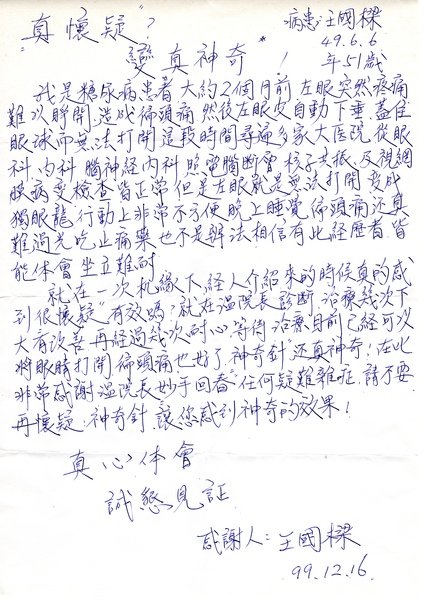 "真懷疑"? 病患:王國樑
變真神奇"! 49.6.6
年51歲
我是糖尿病患者大約2個月前左眼突然疼痛
難以睜開.造成偏頭痛然後左眼皮自動下垂蓋住
眼球而無法打開這段時間尋遍多家大医院從眼
科.內科.腦神經內科照電腦斷層.核子共振.及視網
膜病變檢查皆正常但是左眼就是無法打開變成
獨眼龍.行動上非常不方便晚上睡覺偏頭痛还真
難過光吃止痛藥也不是辦法相信有此經歷者皆
能体會坐立難耐
就在一次机緣下經人介紹來的時候真的感
到很懷疑"有效嗎?就在溫院長診斷.治療幾次下
大有改善再經過幾次耐心等待治療目前已經可以
將眼睛打開偏頭痛也好了.神奇針还真神奇!在此
非常感謝溫院長妙手回春"任何疑難雜症.請不要
再懷疑:神奇針讓您感到神奇的效果!
真心体會
誠懇見証
感謝人:王國樑
99.12.16.